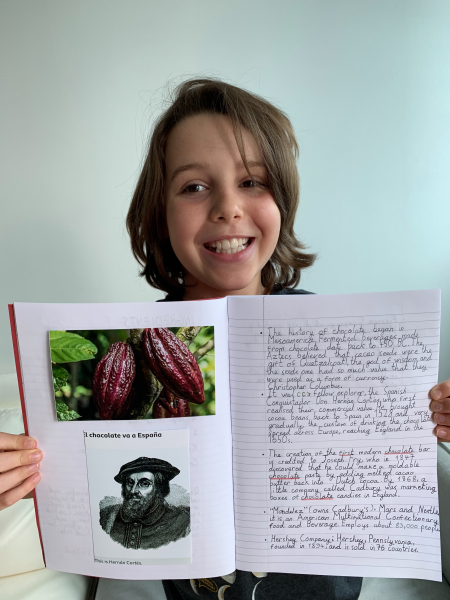 l chocolate va a España
This is Hernán Cortés.
• The history of chocolate began in
Mesoamerica. Fermented beverages made
from chocolate date back to 1900 BC. The
Aztecs believed that cacao seeds were the
gift of Quetzalcoatl, the god of wisdom and
the seeds once had so much value that they
were used as a form of currency.
Christopher Columbus.
• It was fellow explorer, the Spanish
Conquistador Don Hernán Cortés, who first
realised their commercial value. He brought
cocoa beans back to Spain in 1528 and very
gradually, the custom of drinking the chocolate
spread across Europe, reaching England in the
1650s.
• The creation of the first modern chocolate bar
is credited to Joseph Fry, who in 1847
discovered that he could make a moldable
chocolate paste by adding melted cacao
butter back into Dutch cocoa. By 1868, a
little company called Cadbury was marketing
boxes of chocolate candies in England.
• "Mondelez" owns Cadbury's. Mars and Nestle
it is an American Multinational Confectionary
Food and Beverage. Employs about 83,000 people
• Hershey Company: Hershey, Pennsylvania,
founded in 1894 and is sold in 96 countries